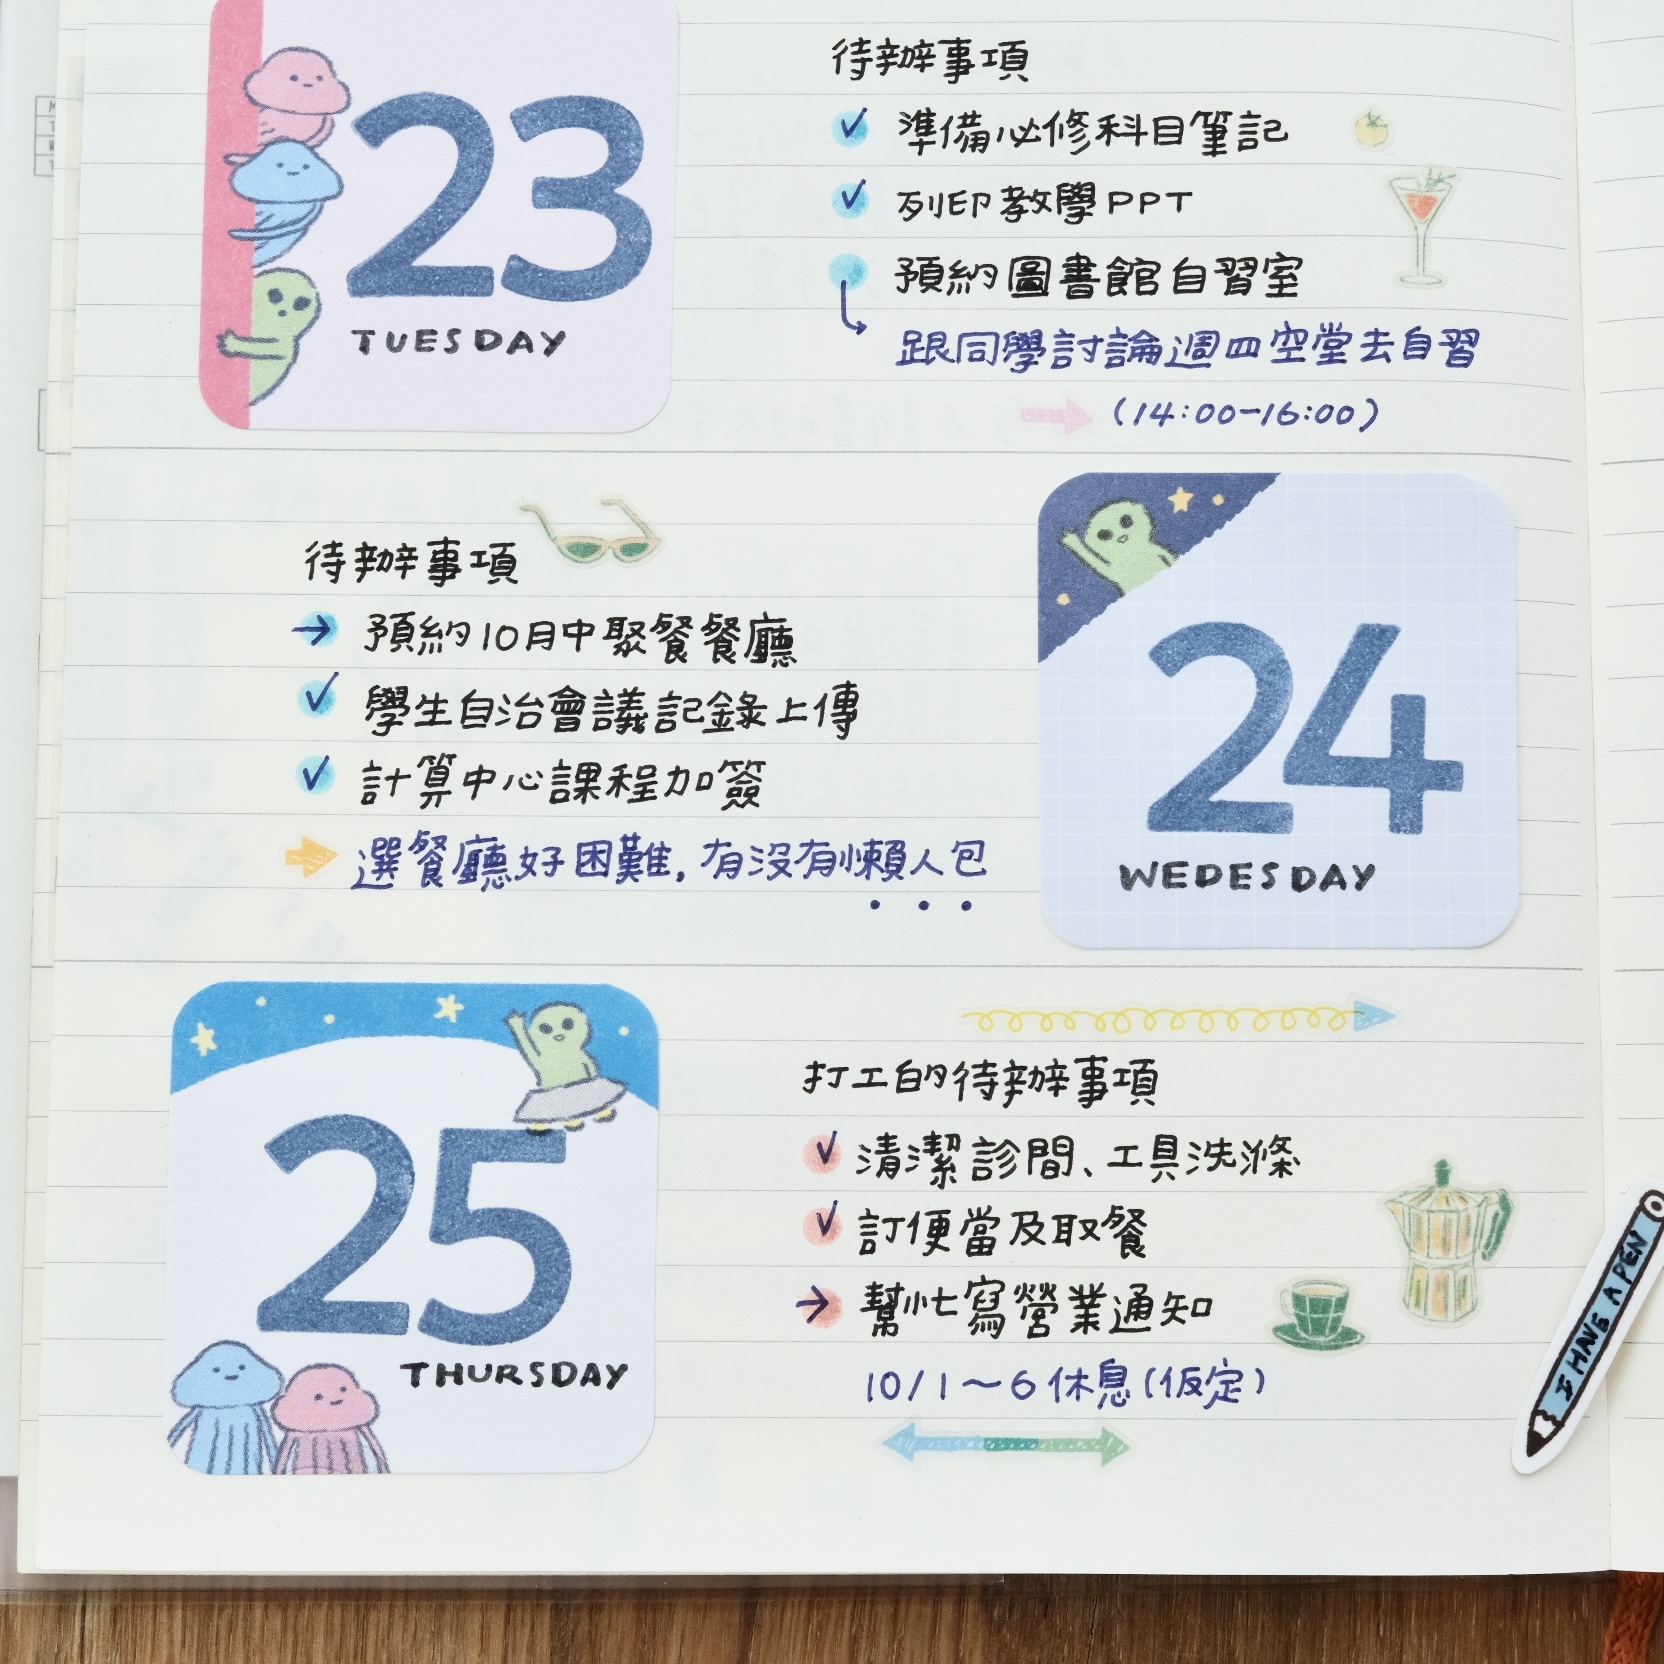 23
TUESDAY
待辦事項
準備必修科目筆記
列印教學PPT
預約圖書館自習室
跟同學討論週四空堂去自習
(14:00-16:00)
待辦事項
預約10月中聚餐餐廳
學生自治會議記錄上傳
計算中心課程加簽
選餐廳好困難,有沒有懶人包
24
WEDESDAY
25
THURSDAY
打工的待辦事項
清潔診間、工具洗滌
訂便當及取餐
幫忙寫營業通知
10/1~6休息(仮定)
I HAVE A PEN